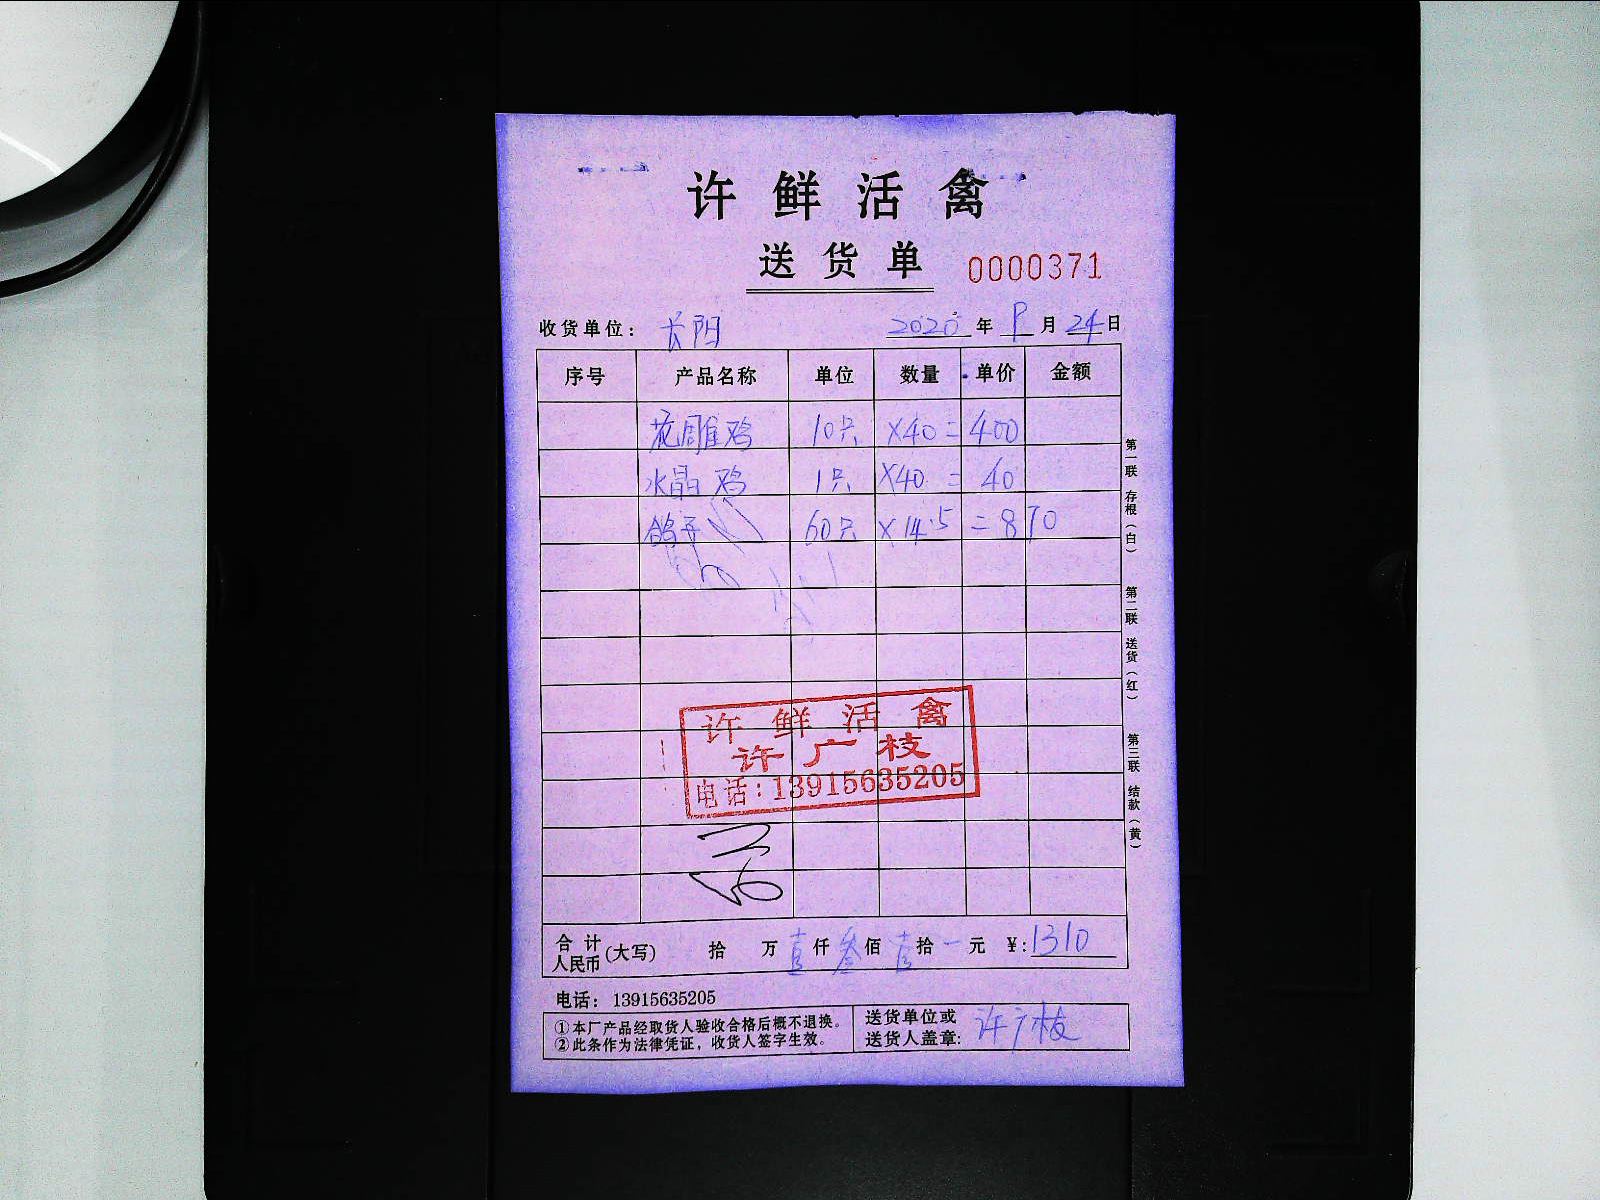 许鲜活禽
送货单 0000371
收货单位: 长阳 2020 年 9 月 24 日
序号 产品名称 单位 数量 单价 金额
花雕鸡 10只 ×40 = 400
水晶鸡 1只 ×40 = 40
鸽子 60只 ×14.5 = 870
许鲜活禽
许广枝
电话:13915635205
合计人民币(大写) 拾 万 壹 仟 叁 佰 壹 拾 一 元 ¥:1310
电话: 13915635205
①本厂产品经取货人验收合格后概不退换。
②此条作为法律凭证,收货人签字生效。
送货单位或
送货人盖章: 许广枝
第一联 存根(白)
第二联 送货(红)
第三联 结款(黄)